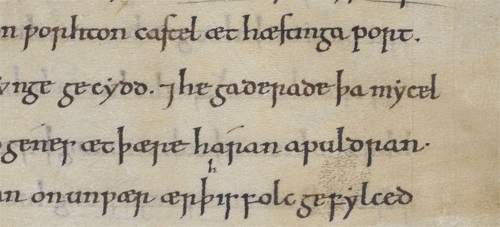 n ƿorhton castel æt hæstinga port.
ynge gecydd. ⁊ he gaderade þa mycel
ogenes æt þære haran apuldran.
an on unƿær ær þis folc gefylced